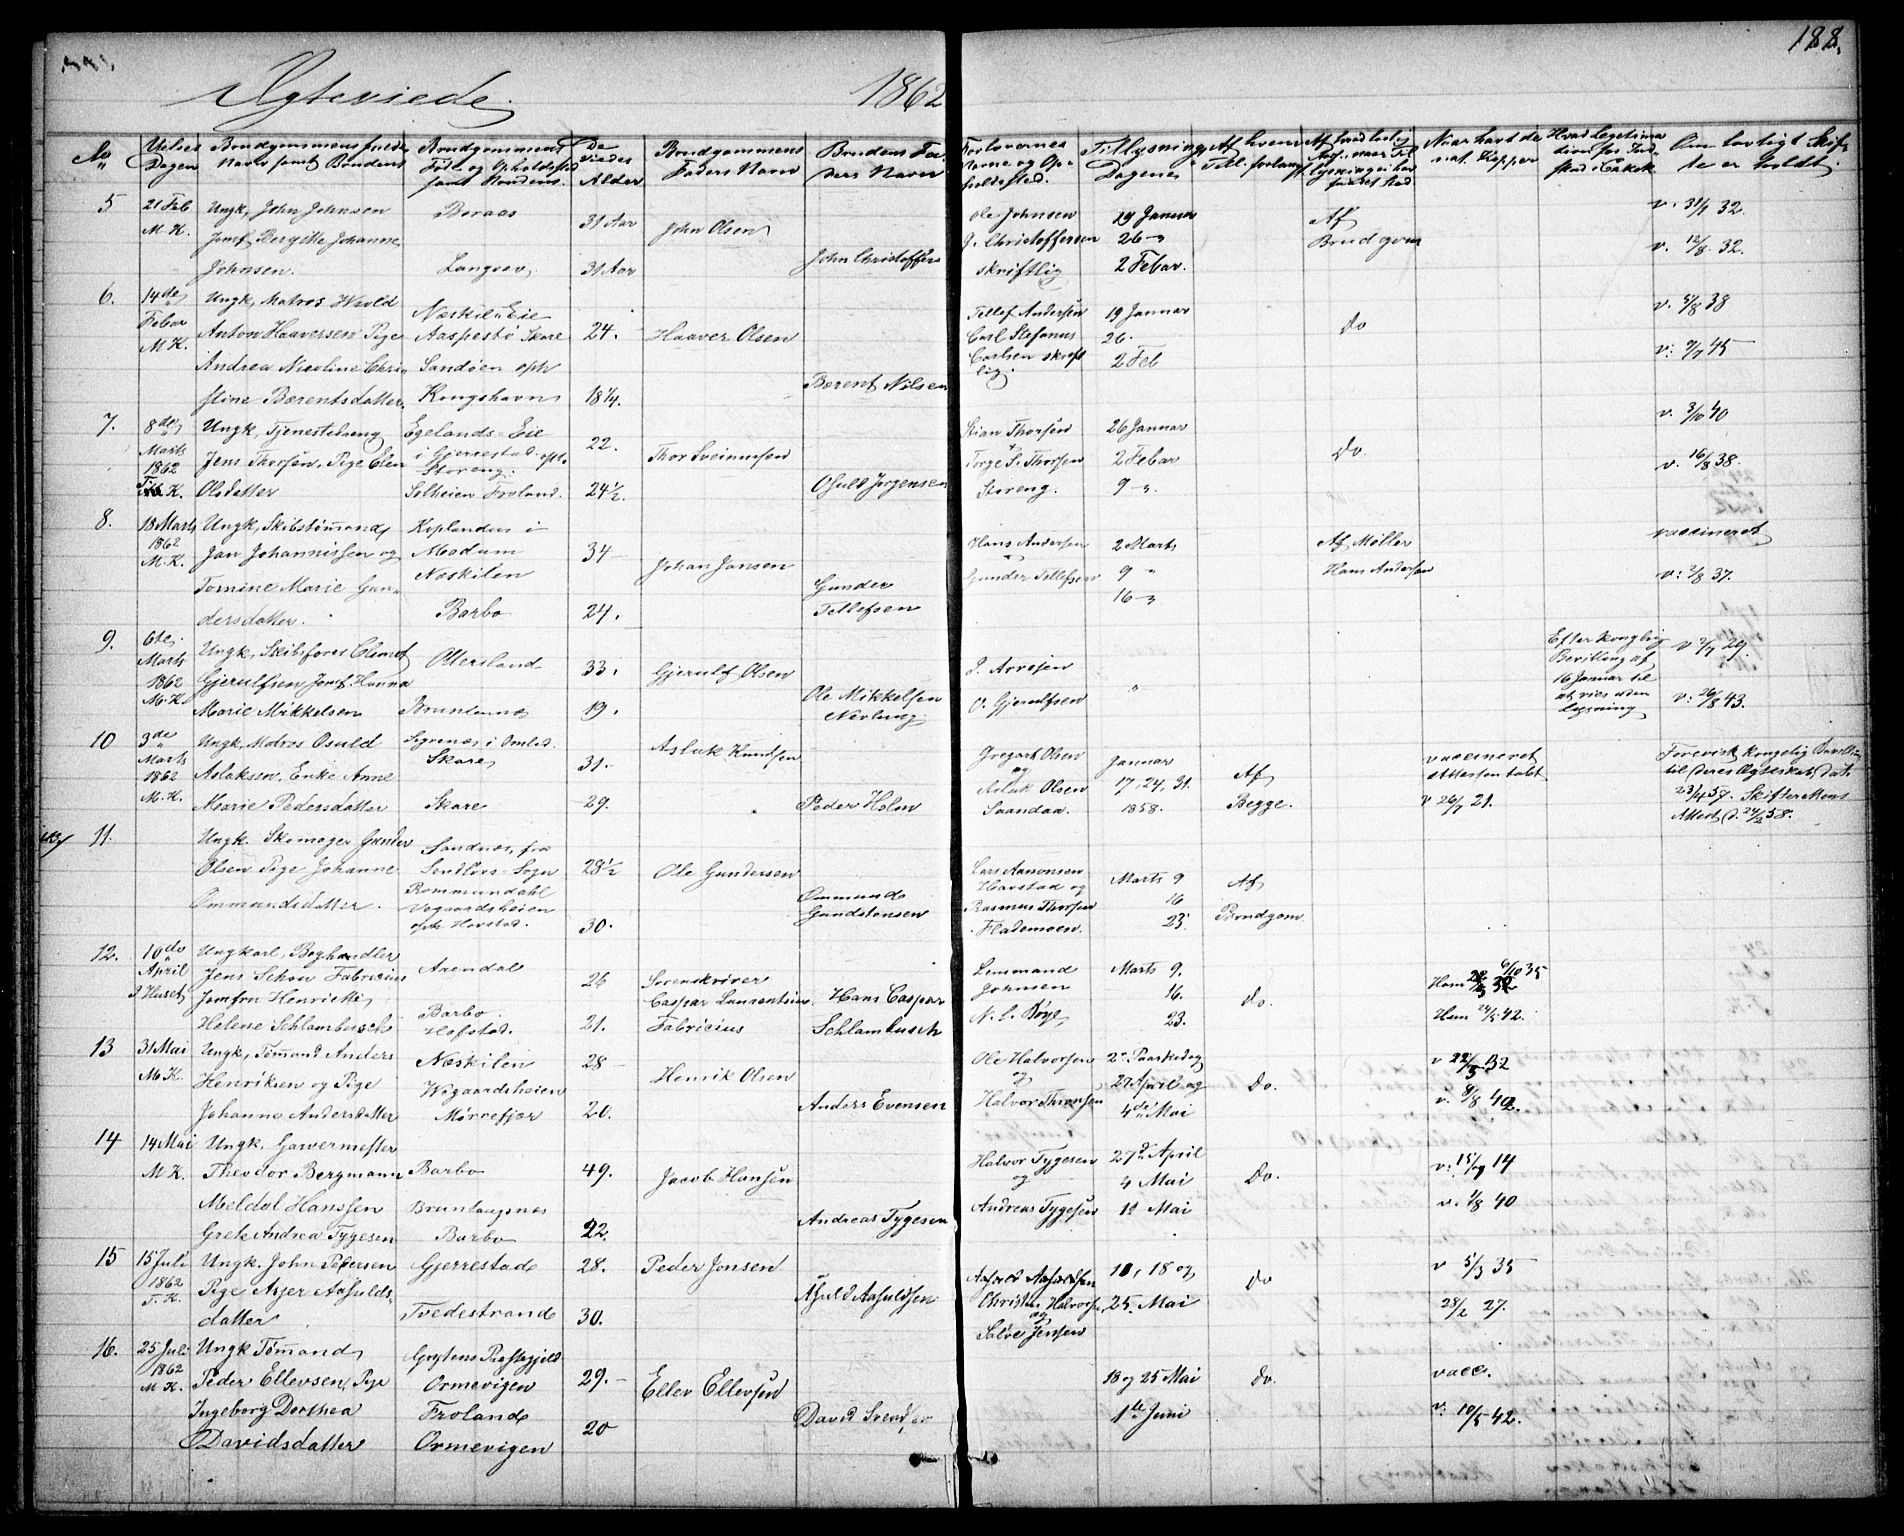 188.
Ægteviede
1862
No
Vielses Dagen
Brudgommens fulde Navn samt Brudens
Brudgommens Føde og Opholdssted samt Brudens.
De Viedes Alder
Brudgommens Faders Navn
Brudens Faders Navn
Forlovernes Navne og Opholdssted.
Tillysnings Dagene
Af hvem Till. forlangt
Naar havt de nat. Kopper
Om lovligt Skifte er holdt.
5
21 Feb
M. K.
Ungk, John Johnsen
Jomf Bergitte Johanne
Johnsen.
Boraas
Langsev
31 Aar
31 Aar
John Olsen
John Christoffers
Ole Johnsen
J. Christoffersen
skriftlig
19 Januar
26 "
2 Febar.
Af
Brudgom
v. 31/1 32.
v. 12/8. 32.
6.
14de
Febar
M K.
Ungk, Matros Wrold
Anton Haaversen Pige
Andrea Nicoline Chri
stine Barentsdatter.
Næskil. Eie
Aaspestø Skare
Sandøen oph
Kongshavn
24.
18 1/4.
Haaver Olsen
Barent Nilsen
Tellef Andersen
Carl Stefanus
Carlsen skrift
lig.
19 Januar
26.
2 Feb
Do
v. 5/8 38
v: 9/7 45
7.
8de
Marts
1862
T. K.
Ungk, Tjenestdreng
Jens Thorsen, Pige Elen
Olsdatter
Egelands Eie
i Gjerrestad oph.
Storeng.
Solheien Froland.
22.
24 1/2.
Thor Sveinunsen
Osuld Jørgensen
Stian Thorsen
Torge S. Thorsen
Storeng.
26 Januar
2 Febar
9 ".
Do
v. 3/10 40
v. 16/8 38.
8.
18 Marts
1862
M. K.
Ungk, Skibstømmand
Jan Johannissen og
Tomine Marie Gun
dersdatter.
Koplandus i
Modum
Næskilen
Barbo
34
24.
Johan Jansen
Gunder
Tellefsen
Hans Andersen
Gunder Tellefsen
2 Marts
9 "
16 "
Af Møller
Hans Andersen
vaccineret
v: 2/8 37.
9.
6te
Marts
1862
M. K.
Ungk, Skibsfører Clemet
Gjerulfsen Jomf. Hanna
Marie Mikkelsen
Ottersland
33.
19.
Gjerulf Olsen
Ole Mikkelsen
Nevlung.
O. Gjerulfsen
"
Efter kongelig
Bevilling af
16 Januar til
at vies uden
lysning
v 2/7 29.
v: 26/8 43.
10
3de
Marts
1862
M. K.
Ungk, Matros Osuld
Aslaksen, Enke Anne
Marie Pedersdatter
Skare
Skare
31.
29.
Aslak Knudsen
Peder Holm
Gregart Olsen
og
Aslak Olsen
Saandaa.
Januar
17, 24, 31.
1858.
Af
Begge.
vaccineret
Attesten tabt
v 26/7 21.
Forevist kongelig Bevilling
til deres Ægteskab, dat.
23/4 57. Skifterettens
Attest d. 24/2 58.
11.
Ungk. Skomager Gunder
Olsen Pige Johanne
Ommundsdatter.
Sandnæs, fra
Sogn
Rommundahl
Vegaardsheien
oph Havstad.
28 1/2
30.
Ole Gundersen
Ommund
Gundstensen
Lars Aanonsen
Havstad og
Rasmus Thorsen
Flademoen.
Marts 9
16
23
Af
Brudgom
12.
10de
April
I Huset
Ungkarl, Boghandler
Jens Schow Fabricius
Jomfru Henriette
Helene Schlambusch
Arendal
Barbo
Hofstad.
26
21.
Sorenskriver
Caspar Laurentius
Fabricius
Hans Caspar
Schlambusch
Lemmand
Johnsen
N. C. Bøye
Marts 9.
16.
23.
Do.
6/10 35
Ham
Hun 24/5 42.
13
31 Mai
M K.
Ungk, Tømmand Anders
Henriksen og Pige
Johanne Andersdatter
Næskilen
Wegaardsheien
Mørcefjær
28
20.
Henrik Olsen
Anders Evensen
Ole Halvorsen
og
Halvor Thronsen
2. Paaskedag
27 April og
4de Mai
Do.
v 22/5 32
v. 8/8 42.
14
14 Mai
M K.
Ungk. Garvermester
Theodor Bergmann
Meldal Hanssen
Grete Andrea Tygesen
Barbo
Brunlaugsnæs
Barbo
49.
22.
Jacob Hansen
Andreas Tygesen
Halvor Tygesen
og
Andreas Tygesen
27d April
4 Mai
11 Mai
Do.
v: 15/9 14
v. 1/8 40
15
15 Juli
1862
T. K.
Ungk. John Pedersen
Pige Asjer Aasulds
datter
Gjerrestad
Tvedestrand
28.
30.
Peder Jonsen
Asuld Aasuldsen
Christen Halvorsen
og
Salve Jensen
11, 18 og
25. Mai
Do
v 5/3 35
28/2 27.
16.
25 Juli
1862
M K.
Ungk Tømmand
Peder Ellevsen, Pige
Ingeborg Dorthea
Davidsdatter
Grytens Præstegjeld
Ormevigen
Froland
Ormevigen
29.
20
Ellev Ellevsen
David Svendsen
18 og 25 Mai
1te Juni
Do.
vacc.
v: 10/5 42.